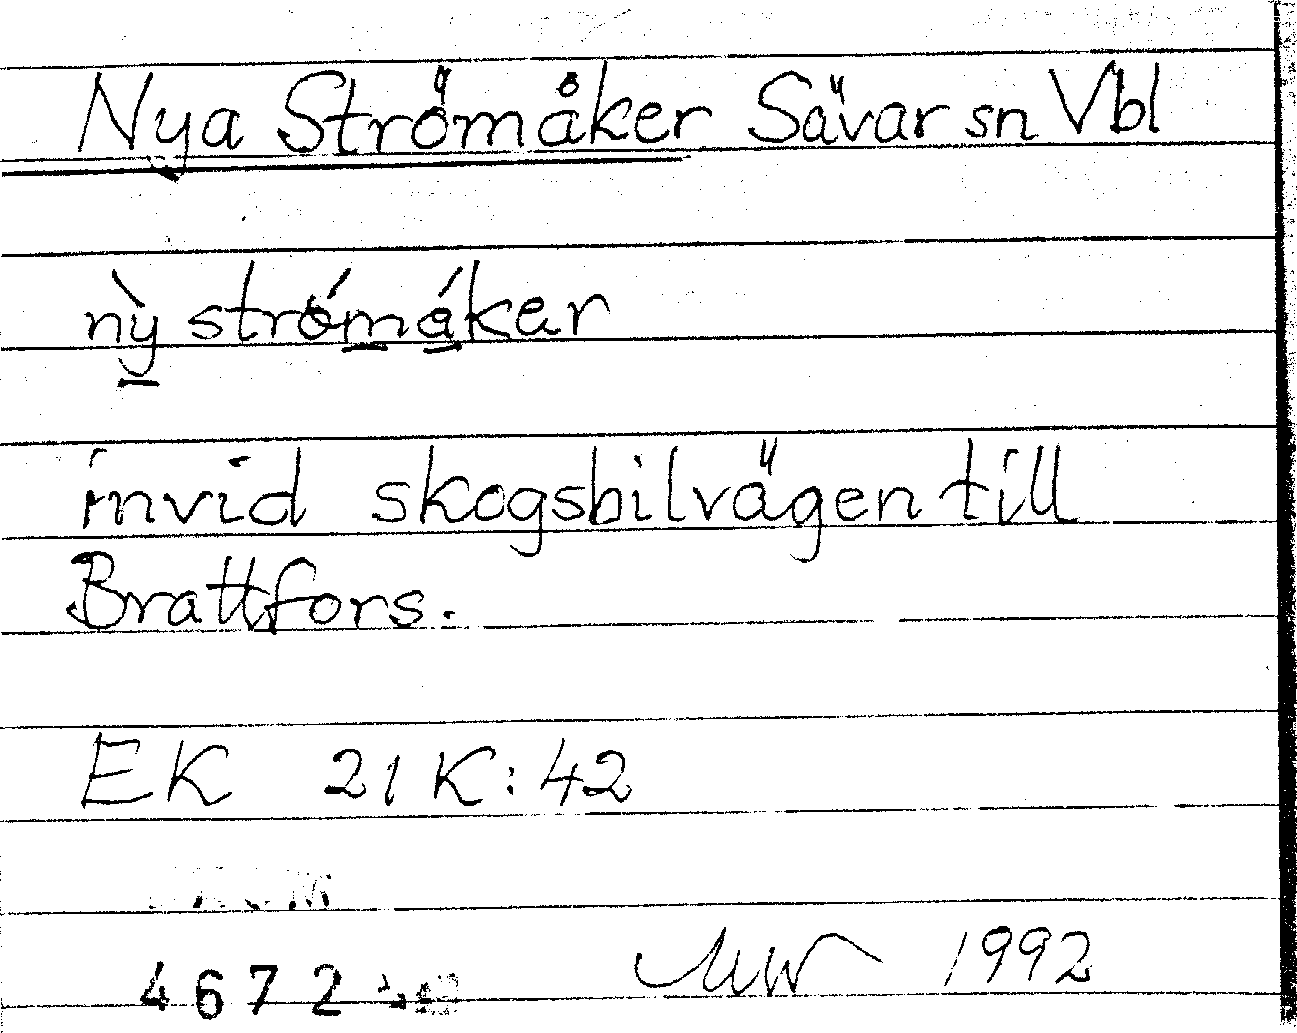 Nya Strömåker Sävar sn Vbl
nỳ strǿmákar
invid skogsbilvägen till
Brattfors.
EK 21 K: 42
4672
1992